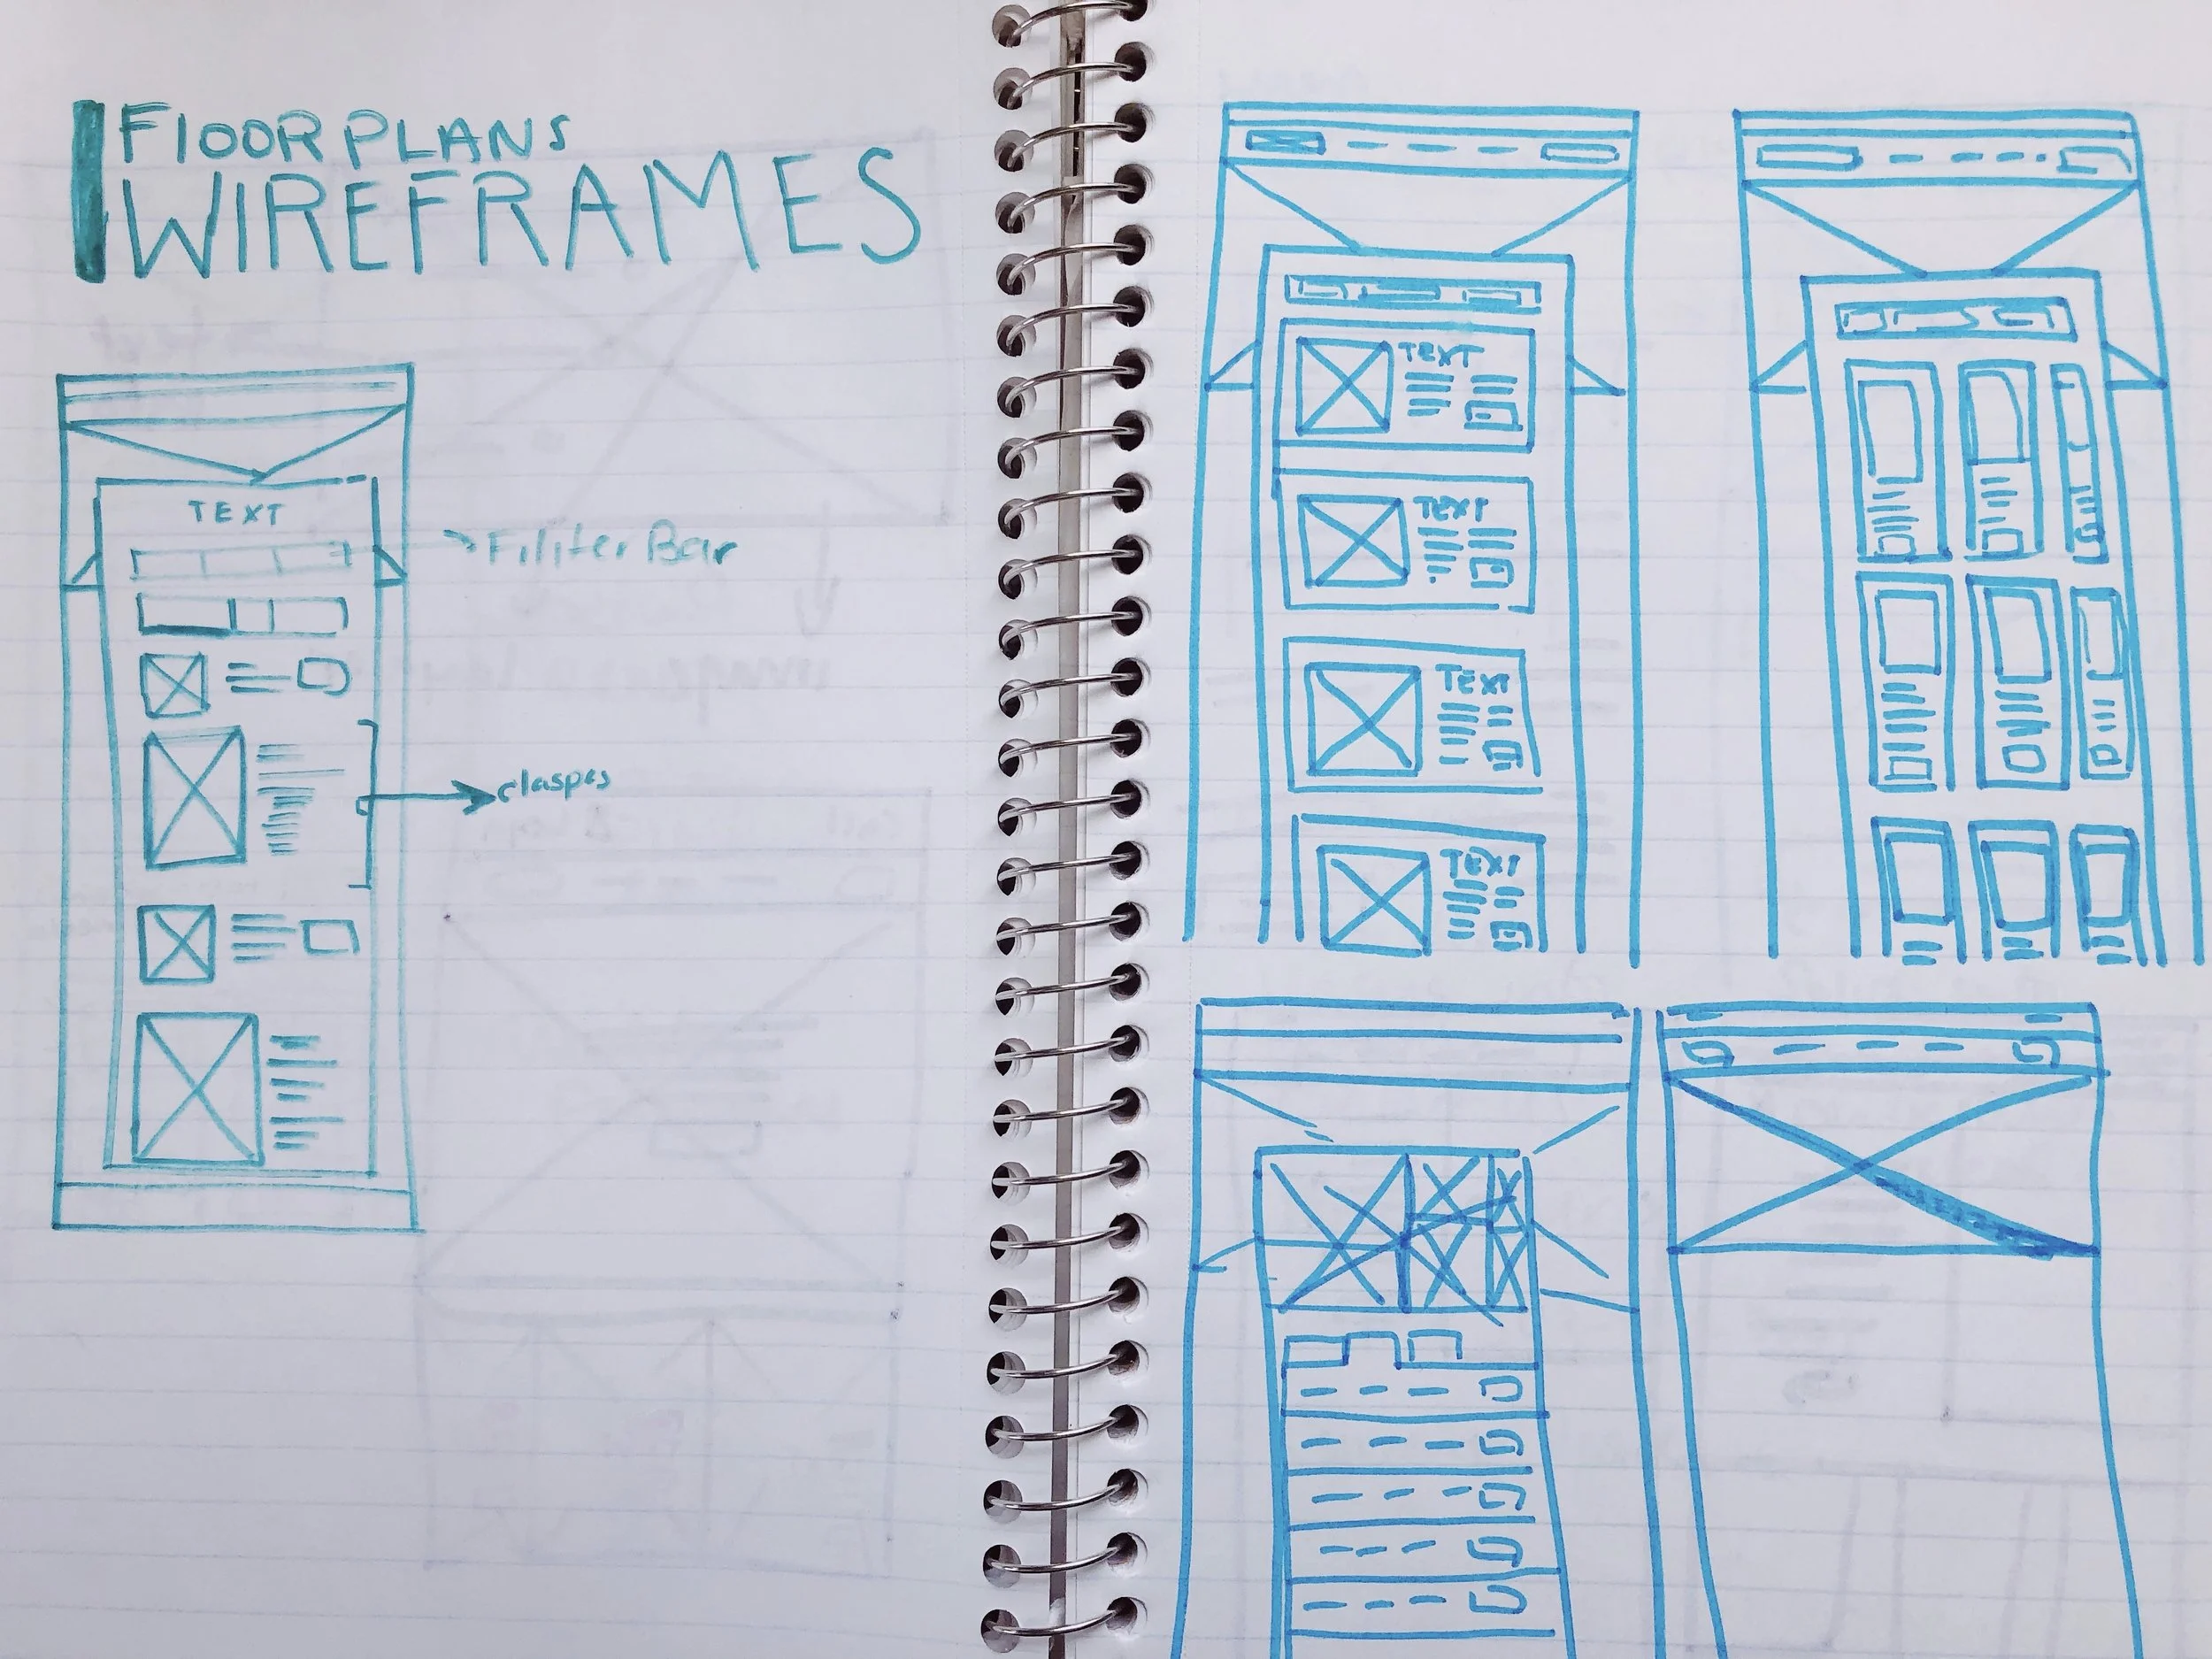 FlOOR PLANS
WIREFRAMES
TEXT
Filifer Bar
claspes
TEXT
TEXT
TEXT
TEXT